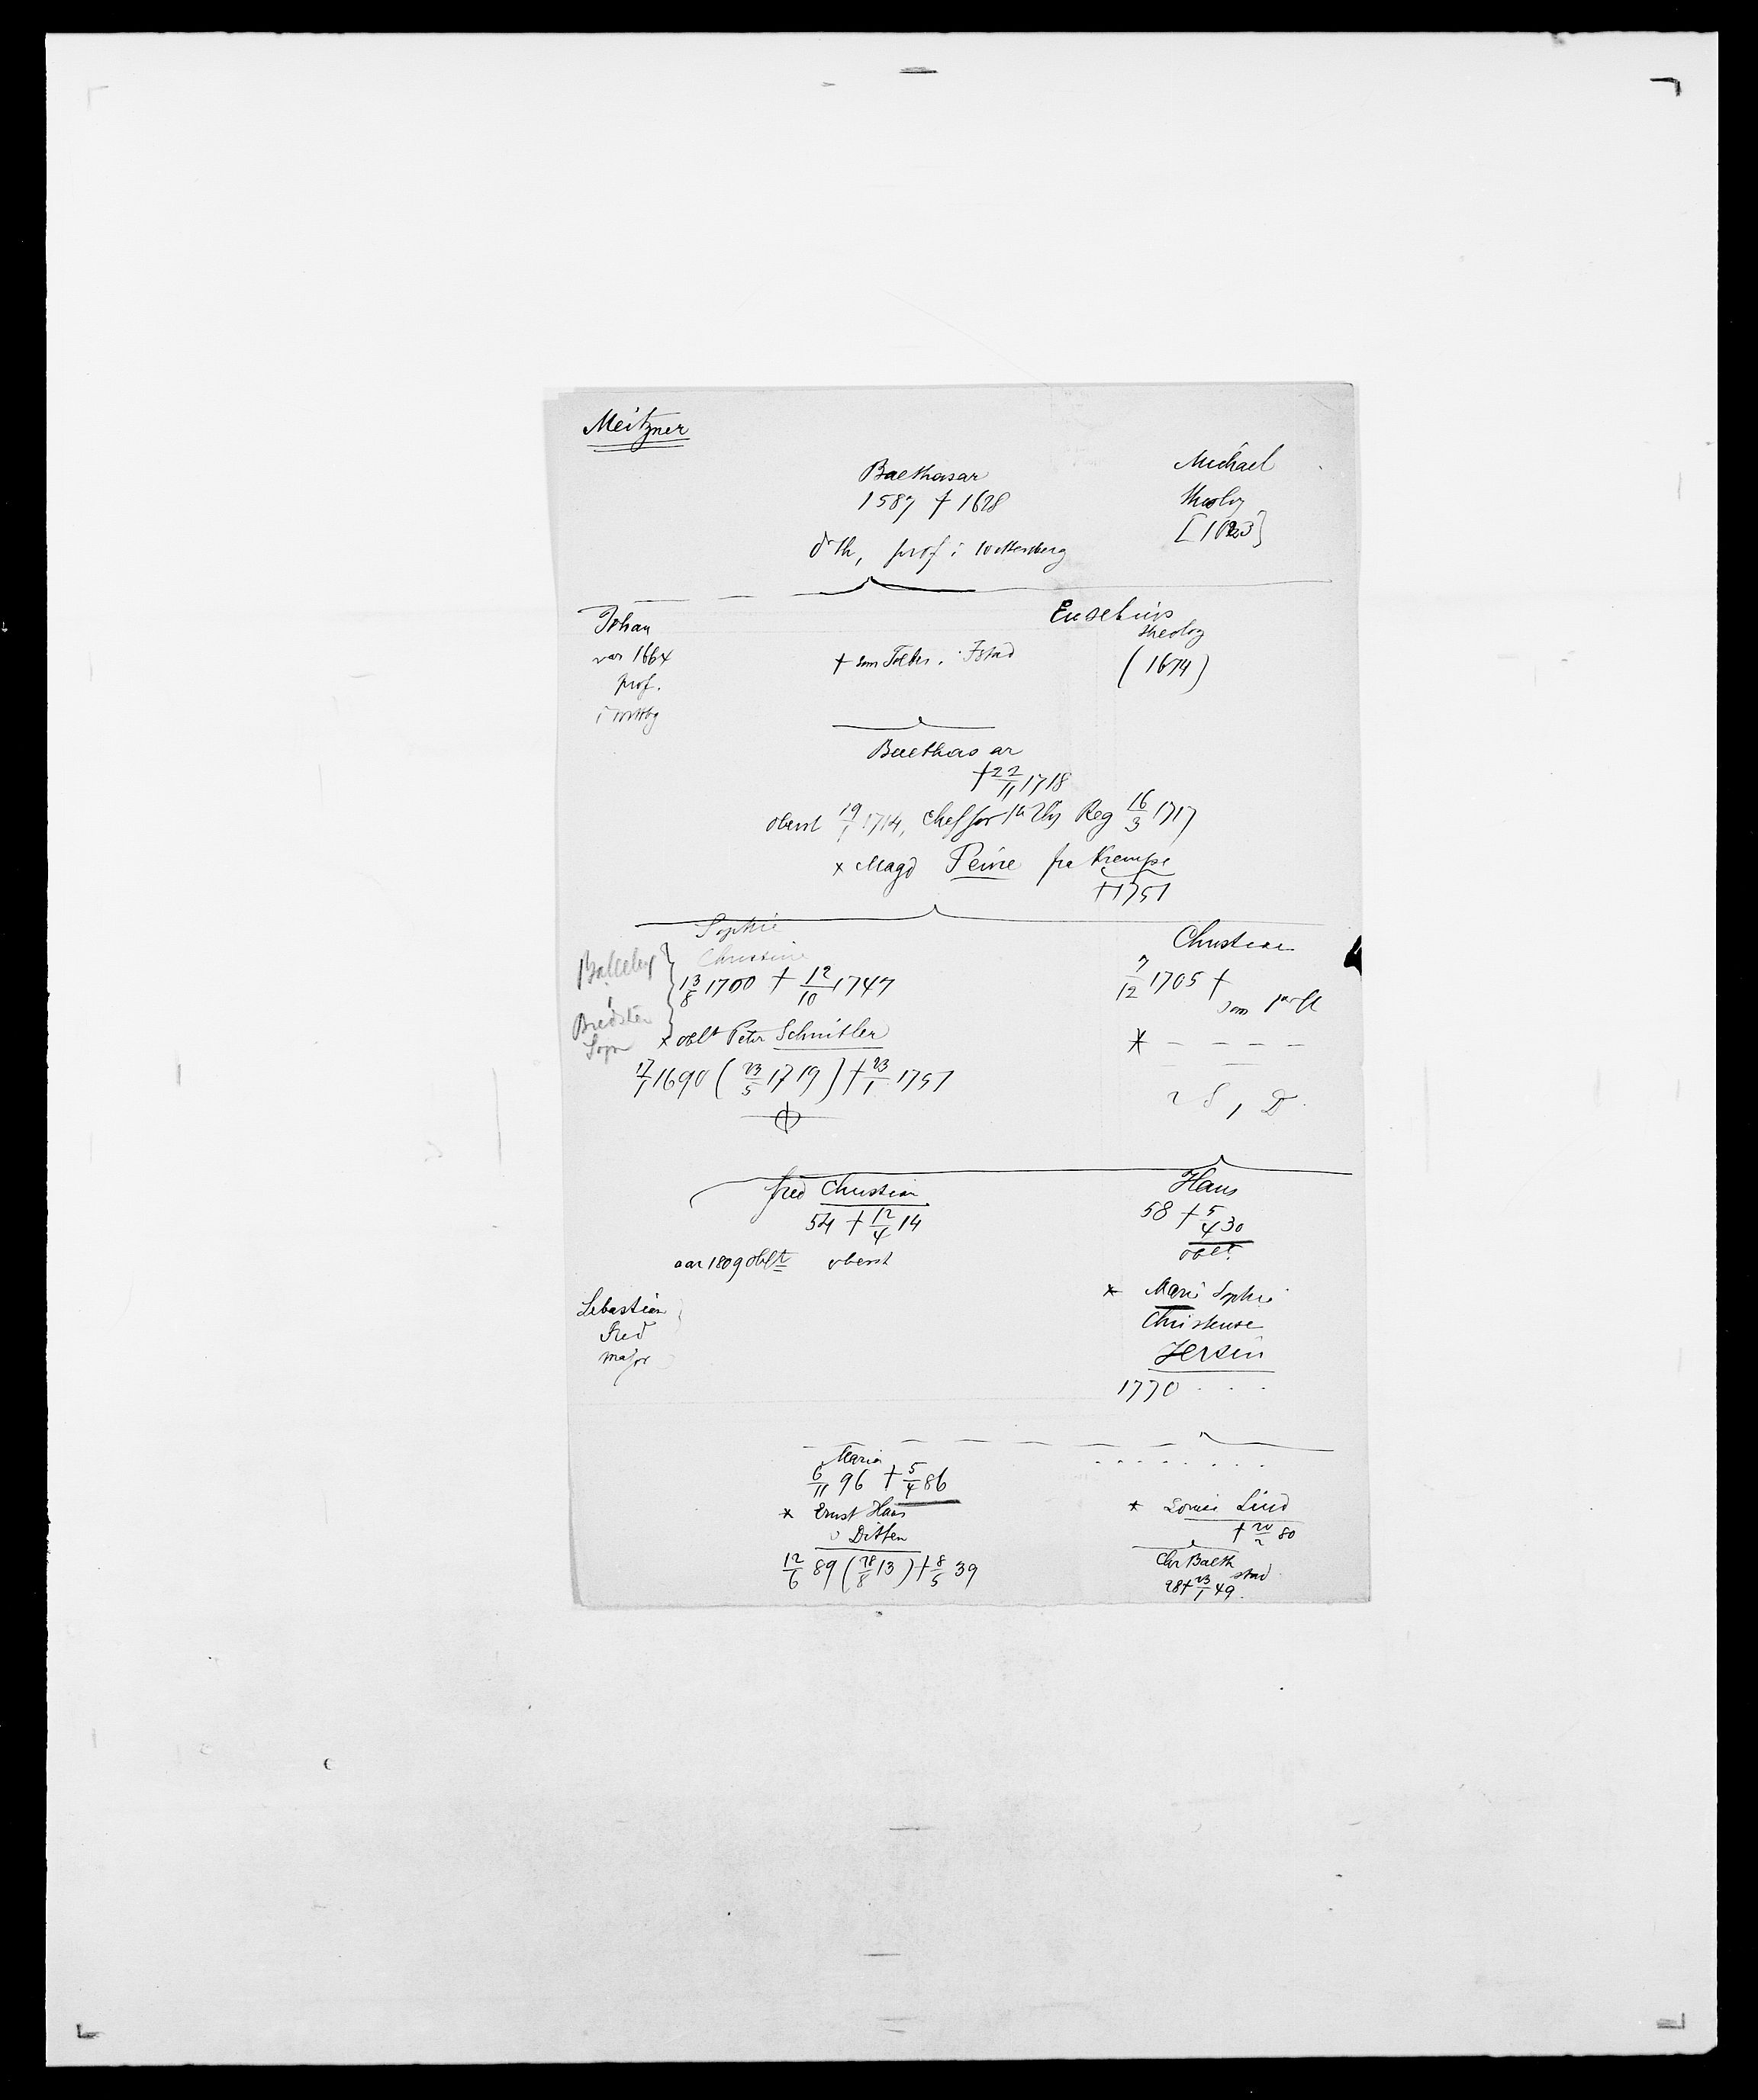 Meitzner
Balthasar
1587 † 1628
dr th, prof i Wittenberg
Michael
theolog
[1623]
Johan
var 1664
prof.
i Wittbg
† som Tolder i Istad
Eusebius
theolog
(1674)
Balthasar
† 22/11 1718
oberst 19/1 1714, chef for Reg 16/3 1717
x Magd Peine fra Krempe
† 1751
Sophie
Christine
13/8 1700 † 12/10 1747
x oblt Peter Schnitler
17/1 1690 (23/5 1719) † 23/1 1751
Christian
7/12 1705 †
som
* - - - -
2 S, D
fred Christian
54 † 12/4 14
aar 1809 oblt oberst
Hans
58 † 5/4 30
oblt
* Marie Sophie
Christense
Jersin
1770 . . .
Sebastian
Fred
major
Maria
6/11 96 † 5/4 86
* Ernst Hans
v Ditten
12/6 89 (28/8 13) † 8/5 39
. . . . . . . .
* Lovise Lind
† 20/2 80
Chr Balth
stud
28 † 23/1 49.